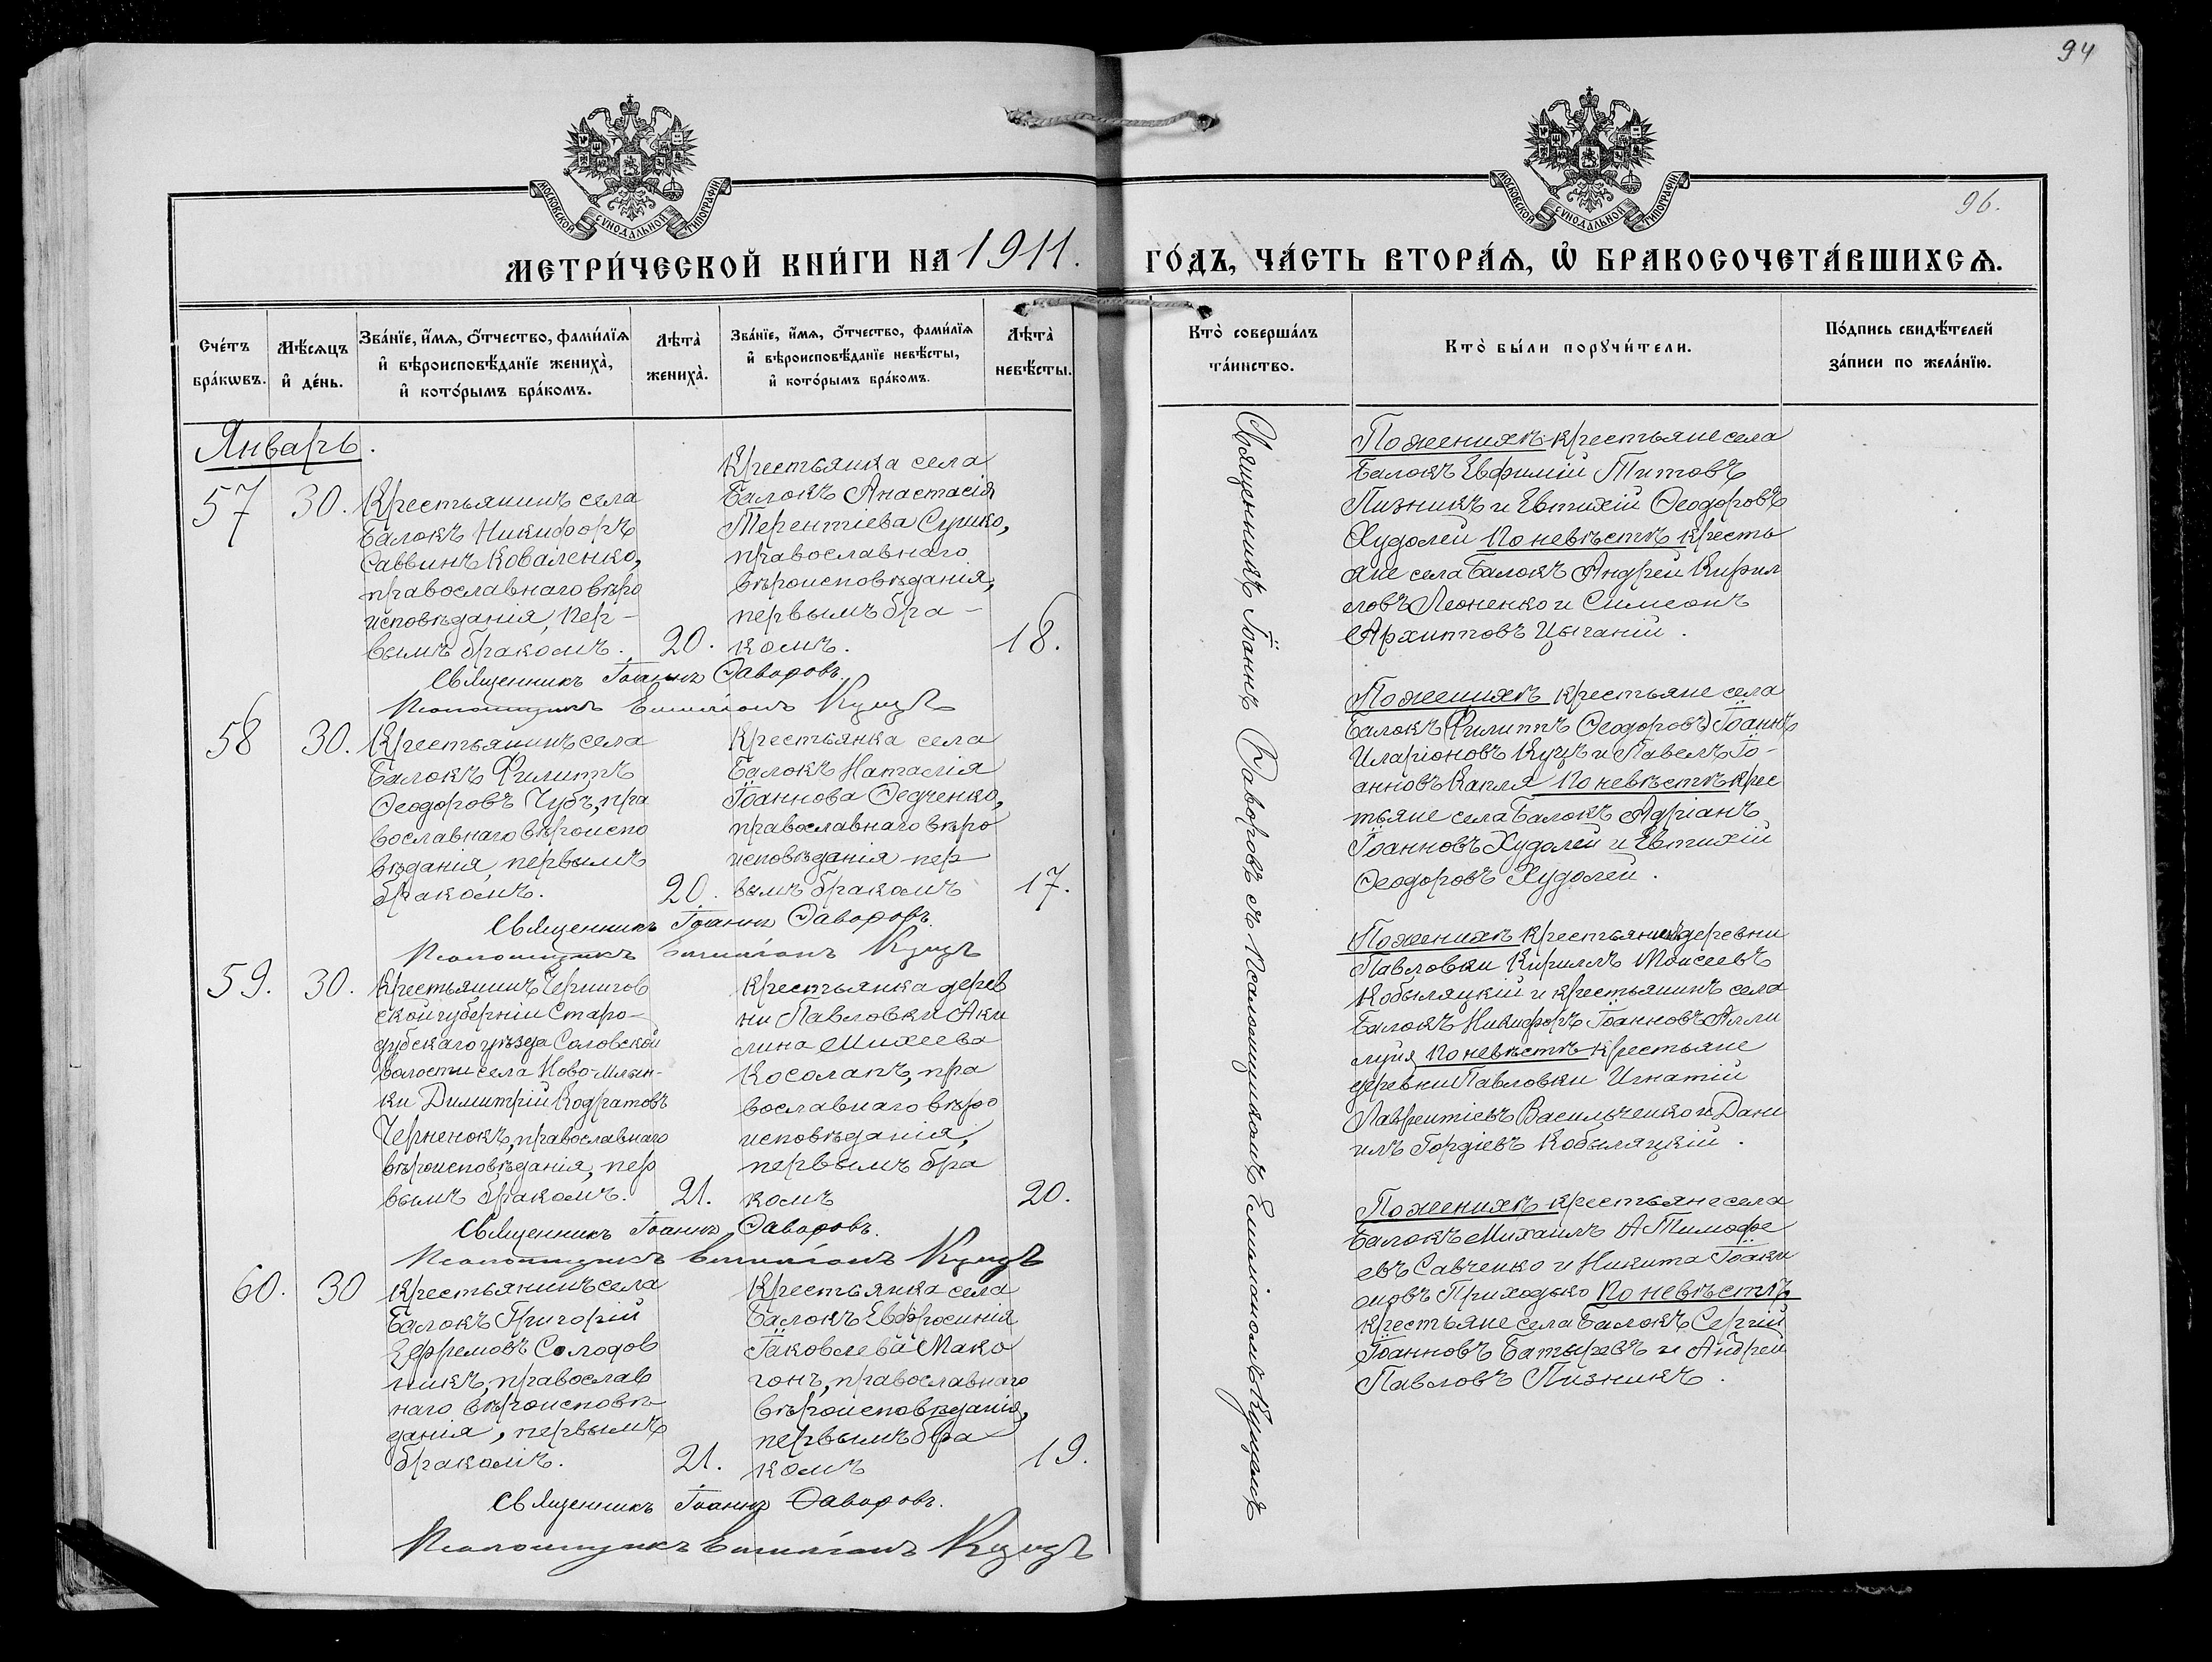 94
96.
МОСКОВСКОЙ СУНОДАЛЬНОЙ ТИПОГРАФІИ
МОСКОВСКОЙ СУНОДАЛЬНОЙ ТИПОГРАФІИ
МЕТРИ́ЧЕСКОЙ КНИ́ГИ НА 1911.
ГО́ДЪ, ЧА́СТЬ ВТОРА́Ѧ, Ѡ҆ БРАКОСОЧЕТА́ВШИХСѦ.
Сче́тъ
бра́кѡвъ.
Мѣ́сяцъ
и҆ де́нь.
Зва́нїе, и҆́мѧ, ѻ҆́тчество, фами́лїѧ
и҆ вѣроисповѣ́данїе жениха̀,
и҆ кото́рымъ бра́комъ.
Лѣта̀
жениха̀.
Зва́нїе, и҆́мѧ, ѻ҆́тчество, фами́лїѧ
и҆ вѣроисповѣ́данїе невѣ́сты,
и҆ кото́рымъ бра́комъ.
Лѣта̀
невѣ́сты.
Кто̀ соверша́лъ
та́инство.
Кто̀ бы́ли порꙋчи́тели.
По́дпись свидѣ́телей
за́писи по жела́нїю.
Январь.
57
30.
Крестьянинъ села
Балокъ Никифоръ
Саввинъ Коваленко,
православнаго вѣро
исповѣданія, пер-
вымъ бракомъ.
20.
Крестьянка села
Балокъ Анастасія
Терентіева Сушко,
православнаго
вѣроисповѣданія,
первымъ бра-
комъ.
18.
Священникъ Іоаннъ Ѳаворовъ.
Псаломщикъ Емиліанъ Куцъ
58
30.
Крестьянинъ села
Балокъ Филиппъ
Ѳеодоровъ Чубъ, пра
вославнаго вѣроиспо
вѣданія, первымъ
бракомъ.
20.
Крестьянка села
Балокъ Наталія
Іоаннова Федченко,
православнаго вѣро
исповѣданія пер
вымъ бракомъ
17.
Священникъ Іоаннъ Ѳаворовъ.
Псаломщикъ Емиліанъ Куцъ
59.
30.
Крестьянинъ Чернигов
ской губерніи Старо-
дубскаго уѣзда Соловской
волости села Ново-Млын-
ки Димитрій Кодратовъ
Черненокъ, православнаго
вѣроисповѣданія, пер
вымъ бракомъ.
21.
Крестьянка дерев
ни Павловки Аки
лина Михеева
Косолапъ, пра
вославнаго вѣро
исповѣданія,
первымъ бра
комъ
20.
Священникъ Іоаннъ Ѳаворовъ.
Псаломщикъ Емиліанъ Куцъ
60.
30
Крестьянинъ села
Балокъ Григорій
Ефремовъ Солодов
никъ, православ
наго вѣроисповѣ
данія, первымъ
бракомъ.
21.
Крестьянка села
Балокъ Евфросинія
Іаковлева Мако
гонъ, православнаго
вѣроисповѣданія,
первымъ бра
комъ
19.
Священникъ Іоаннъ Ѳаворовъ.
Псаломщикъ Емиліанъ Куцъ
Священникъ Іоаннъ Ѳаворовъ съ Псаломщикомъ Емиліаномъ Куцемъ
По женихѣ крестьяне села
Балокъ Евфимій Титовъ
Пизникъ и Евтихій Ѳеодоровъ
Худолей По невѣстѣ кресть
яне села Балокъ Андрей Кирил
ловъ Леоненко и Симеонъ
Архипповъ Цыганій.
По женихѣ крестьяне села
Балокъ (Филиппъ Ѳеодоровъ) Іоаннъ
Иларіоновъ Куцъ и Павелъ Іо-
анновъ Капля По невѣстѣ крес
тьяне села Балокъ Адріанъ
Іоанновъ Худолей и Евтихій
Ѳеодоровъ Худолей.
По женихѣ крестьянинъ деревни
Павловки Кириллъ Моисеевъ
Кобыляцкій и крестьянинъ села
Балокъ Никифоръ Іоанновъ Алли
луйя По невѣстѣ крестьяне
деревни Павловки Игнатій
Лаврентіевъ Васильченко и Дани
илъ Гордіевъ Кобыляцкій.
По женихѣ крестьяне села
Балокъ Михаилъ Тимофе
евъ Савченко и Никита Іоаки
мовъ Приходько По невѣстѣ
крестьяне села Балокъ Сергій
Іоанновъ Батыревъ и Андрей
Павловъ Пизникъ.